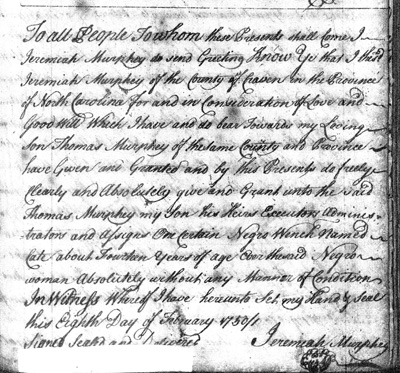 To all People To whom these Presents shall Come I
Jeremiah Murphey do send Greeting Know Ye that I the sd
Jeremiah Murphey of the County of Craven in the Province
of North Carolina for and in Consideration of Love and
Good Will Which I have and do bear Towards my Loving
Son Thomas Murphey of the same County and Province
have Given and Granted and by this Presents do freely
Clearly and Absolutely give and Grant unto the said
Thomas Murphey my Son his Heirs Executors Admines-
trators and Assigns One Certain Negro Wench Named
Cate about Fourteen Years of age Our the said Negro
woman Absolutely without any Manner of Condition
In Witness Whereof I have hereunto Set my Hand & Seal
this Eighth Day of February 1750/1
Signed Sealed and Delivered Jeremiah Murphey